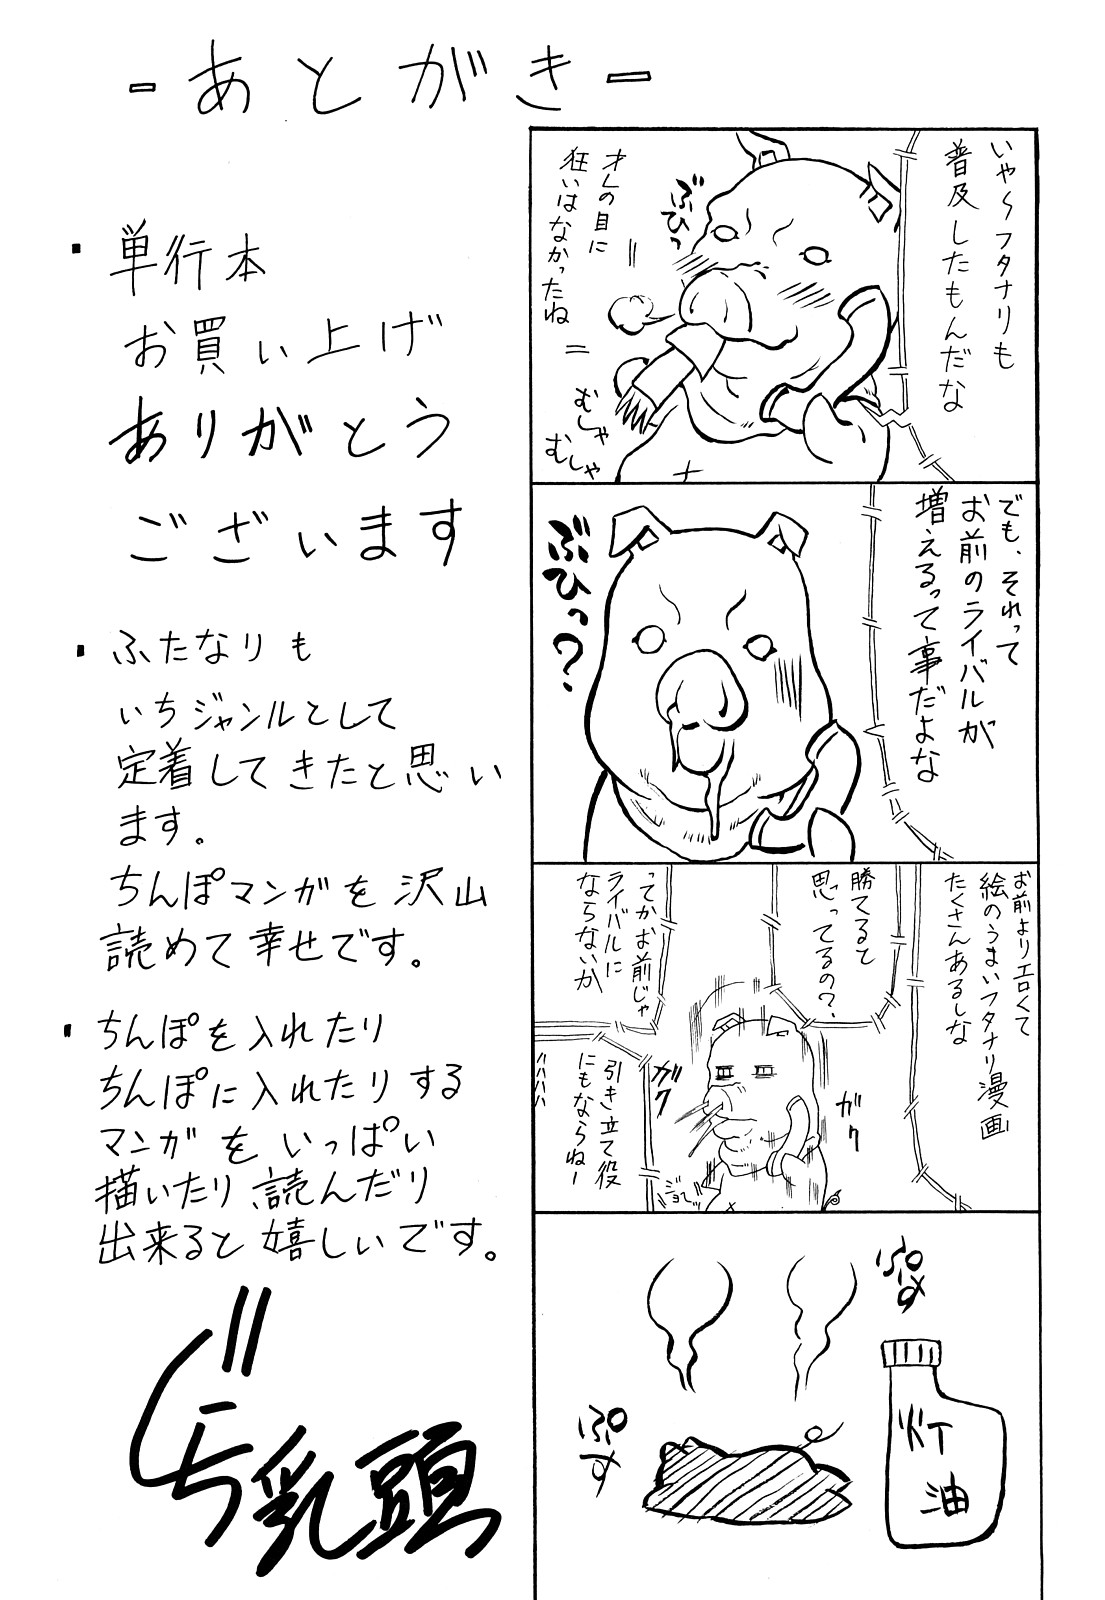 -あとがき-
・単行本
お買い上げ
ありがとう
ございます
・ふたなりも
いちジャンルとして
定着してきたと思い
ます。
ちんぽマンガを沢山
読めて幸せです。
・ちんぽを入れたり
ちんぽに入れたりする
マンガをいっぱい
描いたり、読んだり
出来ると嬉しいです。
乳頭
いや〜フタナリも
普及したもんだな
オレの目に
狂いはなかったね
ぶひっ
むしゃ
むしゃ
でも、それって
お前のライバルが
増えるって事だよな
ぶひっ?
お前よりエロくて
絵のうまいフタナリ漫画
たくさんあるしな
勝てると
思ってるの?
ってかお前じゃ
ライバルに
ならないか
引き立て役
にもならねー
ハハハハ
ガク
ガク
ジョ〜
ぷす
ぷす
灯油